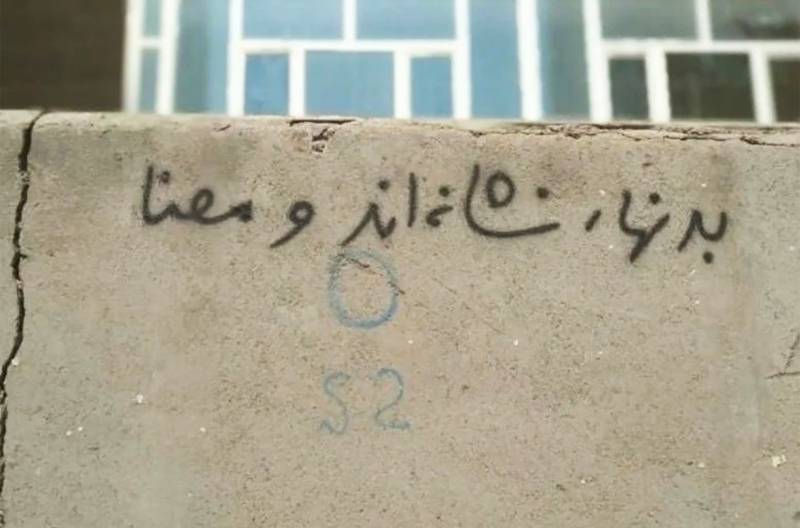 بدنها، نشانه‌اند و معنا
O
S2